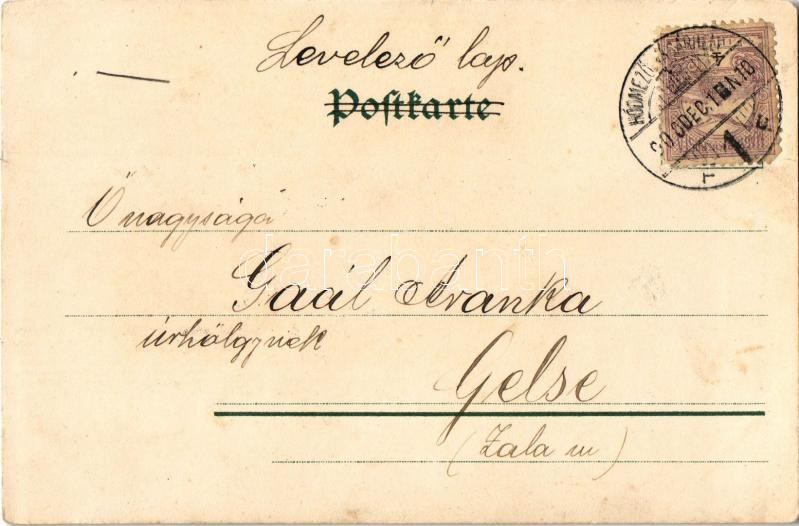 Levelező lap.
Postkarte
HÓDMEZŐ
900 DEC. 1
1
Őnagysága
Gaál Aranka
úrhölgynek
Gelse
(Zala m)
darabanth